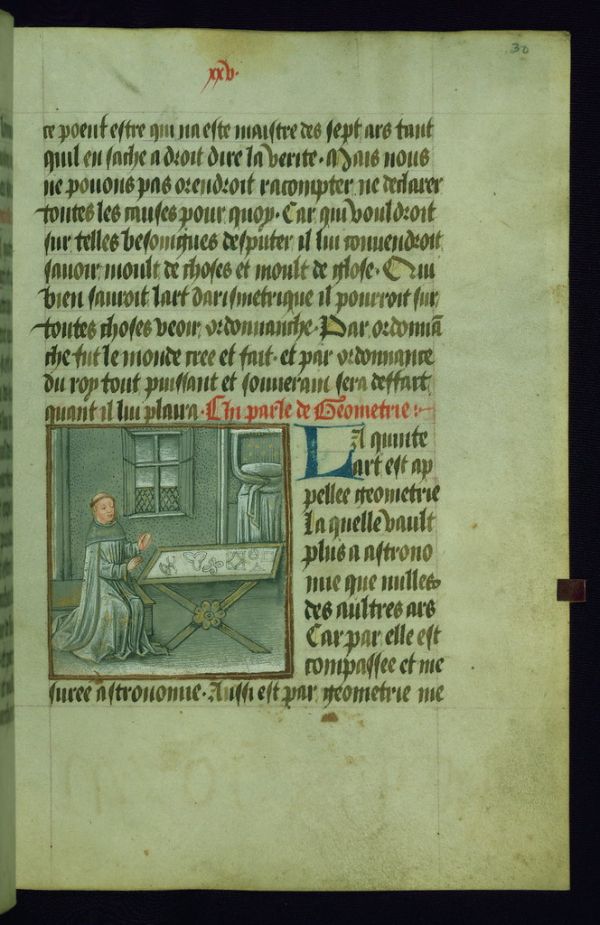 30
xxv.
ce poent estre qui na este maistre des sept ars tant
quil en sache a droit dire la verite. Mais nous
ne pouons pas orendroit racompter ne declarer
toutes les causes pour quoy. Car qui vouldroit
sur telles besoingnes desputer il lui conuendroit
sauoir moult de choses et moult de glose. Qui
bien sauroit lart darismetrique il pourroit sur
toutes choses veoir ordonnanche. Par ordonnā
che fut le monde cree et fait. et par ordonnance
du roy tout puissant et souuerain sera deffait
quant il lui plaira. Cy parle de Geometrie
LA quinte
art est ap
pellee geometrie
La quelle vault
plus a astrono
mie que nulles
des aultres ars
Car par elle est
compassee et me
suree astronomie. Aussi est par geometrie me